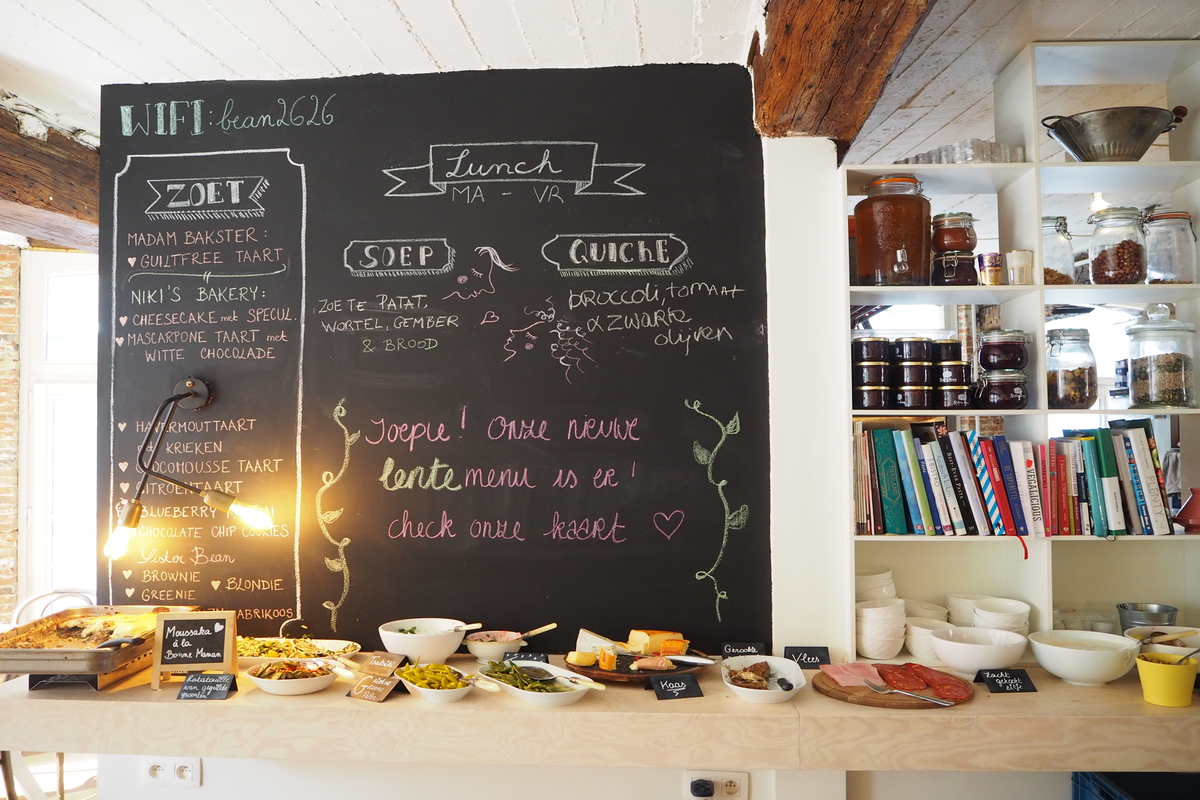 WIFI: bean2626
ZOET
MADAM BAKSTER:
GUILTFREE TAART
NIKI'S BAKERY:
CHEESECAKE met SPECUL.
MASCARPONE TAART met
WITTE CHOCOLADE
HAVERMOUTTAART
KRIEKEN
CHOCOMOUSSE TAART
CITROENTAART
BLUEBERRY
CHOCOLATE CHIP COOKIES
Sister Bean
BROWNIE
BLONDIE
GREENIE
ABRIKOOS
Lunch
MA - VR
SOEP
ZOETE PATAT,
WORTEL, GEMBER
& BROOD
QUICHE
broccoli, tomaat
& zwarte
olijven
Joepie! Onze nieuwe
lente menu is er!
check onze kaart
Moussaka
à la
Bonne Maman
Ratatouille
van gegrilde
Kaas
Gerookte
Vlees
Zacht
gekookt
eitje
VEGALICIOUS
PLENTY